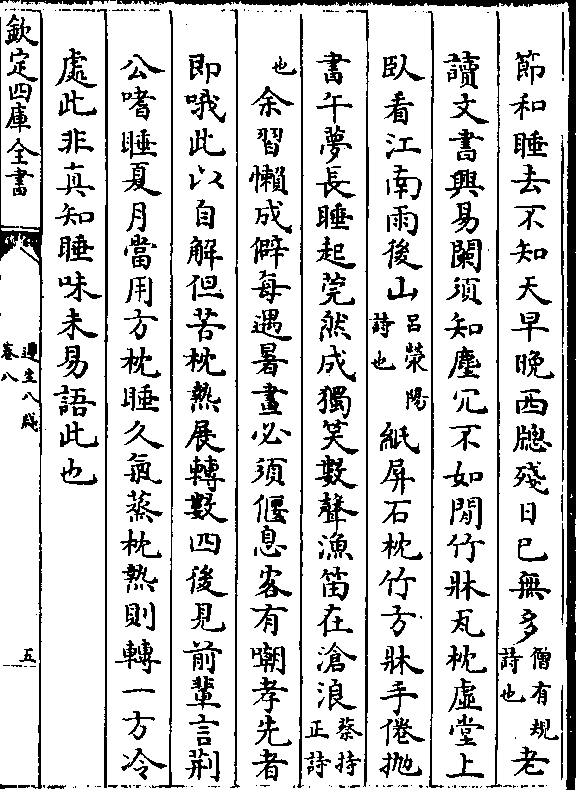 節和睡去不知天早晚西牕殘日已無多僧有規詩也老
讀文書興易闌須知塵冗不如閒竹牀瓦枕虛堂上
臥看江南雨後山呂滎陽詩也紙屏石枕竹方牀手倦拋
書午夢長睡起莞然成獨笑數聲漁笛在滄浪蔡持正詩
也余習懶成僻每遇暑晝必須偃息客有嘲孝先者
即哦此以自解但苦枕熱展轉數四後見前輩言荆
公嗜睡夏月當用方枕睡久氣蒸枕熱則轉一方冷
處此非真知睡味未易語此也
欽定四庫全書
遵生八牋
卷八
五